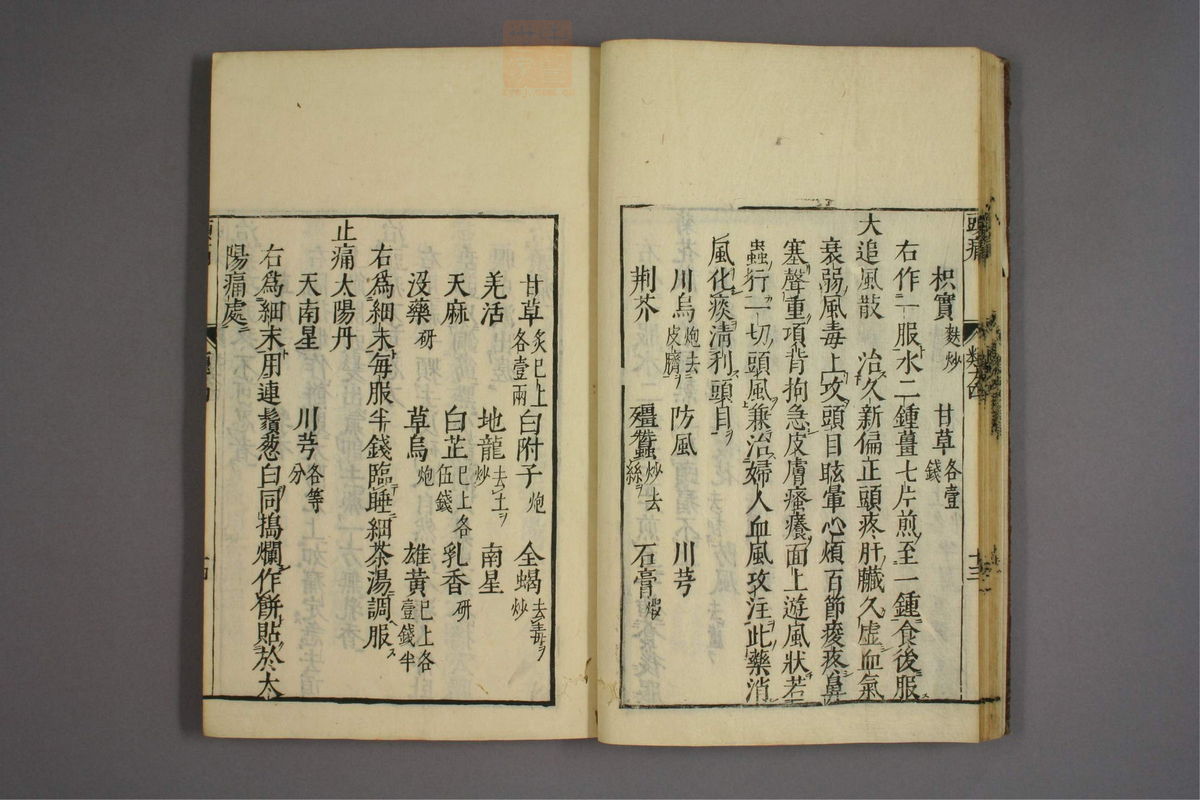 頭痛
枳實麩炒 甘草各壹錢
右作一服水二鍾薑七片煎至一鍾食後服
大追風散 治久新偏正頭疼肝臟久虚血氣
衰弱風毒上攻頭目眩暈心煩百節痠疼鼻
塞聲重項背拘急皮膚瘙癢面上遊風狀若
蟲行一切頭風兼治婦人血風攻注此藥消
風化痰清利頭目
川烏炮去皮臍 防風 川芎
荆芥 殭蠶炒去絲 石膏煅
甘草炙已上各壹兩 白附子炮 全蝎去毒炒
羌活 地龍去土炒 南星
天麻 白芷已上各伍錢 乳香研
没藥研 草烏炮 雄黄已上各壹錢半
右爲細末每服半錢臨睡細茶湯調服
止痛太陽丹
天南星 川芎各等分
右爲細末用連鬚葱白同搗爛作餅貼於太
陽痛處